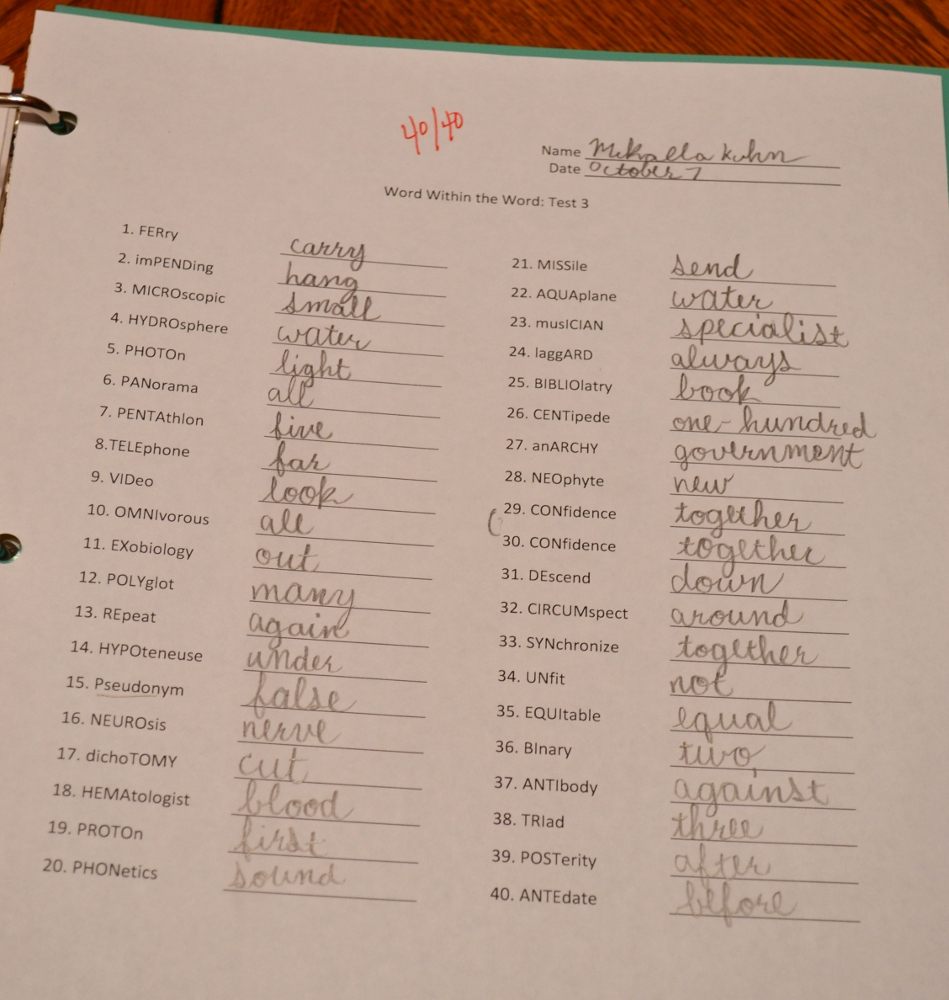 40/40
Name Mikaela Kuhn
Date October 7
Word Within the Word: Test 3
1. FERry carry
2. imPENDing hang
3. MICROscopic small
4. HYDROsphere water
5. PHOTOn light
6. PANorama all
7. PENTAthlon five
8.TELEphone far
9. VIDeo look
10. OMNIvorous all
11. EXobiology out
12. POLYglot many
13. REpeat again
14. HYPOteneuse under
15. Pseudonym false
16. NEUROsis nerve
17. dichoTOMY cut
18. HEMAtologist blood
19. PROTOn first
20. PHONetics sound
21. MISSile send
22. AQUAplane water
23. musICIAN specialist
24. laggARD always
25. BIBLIOlatry book
26. CENTipede one-hundred
27. anARCHY government
28. NEOphyte new
29. CONfidence together
30. CONfidence together
31. DEscend down
32. CIRCUMspect around
33. SYNchronize together
34. UNfit not
35. EQUItable equal
36. BInary two
37. ANTIbody against
38. TRIad three
39. POSTerity after
40. ANTEdate before